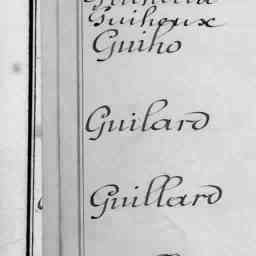 Guiheux
Guiho
Guilard
Guillard